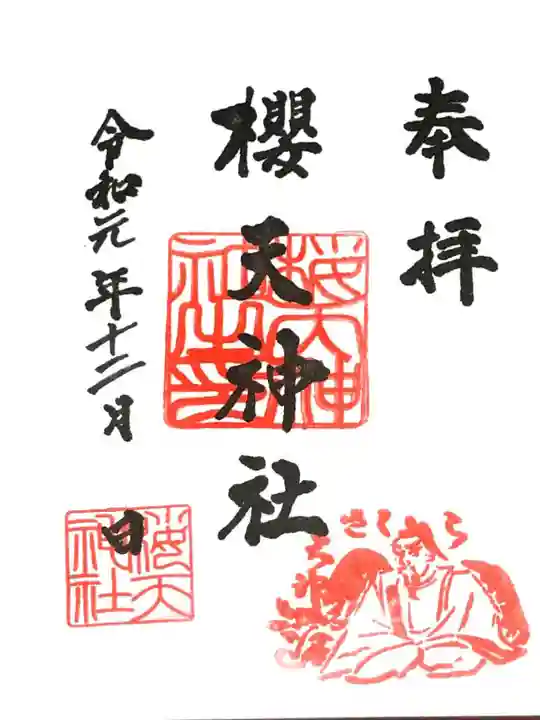 奉拝
櫻天神社
令和元年十二月
日
櫻天神社印
櫻天神社
さくら